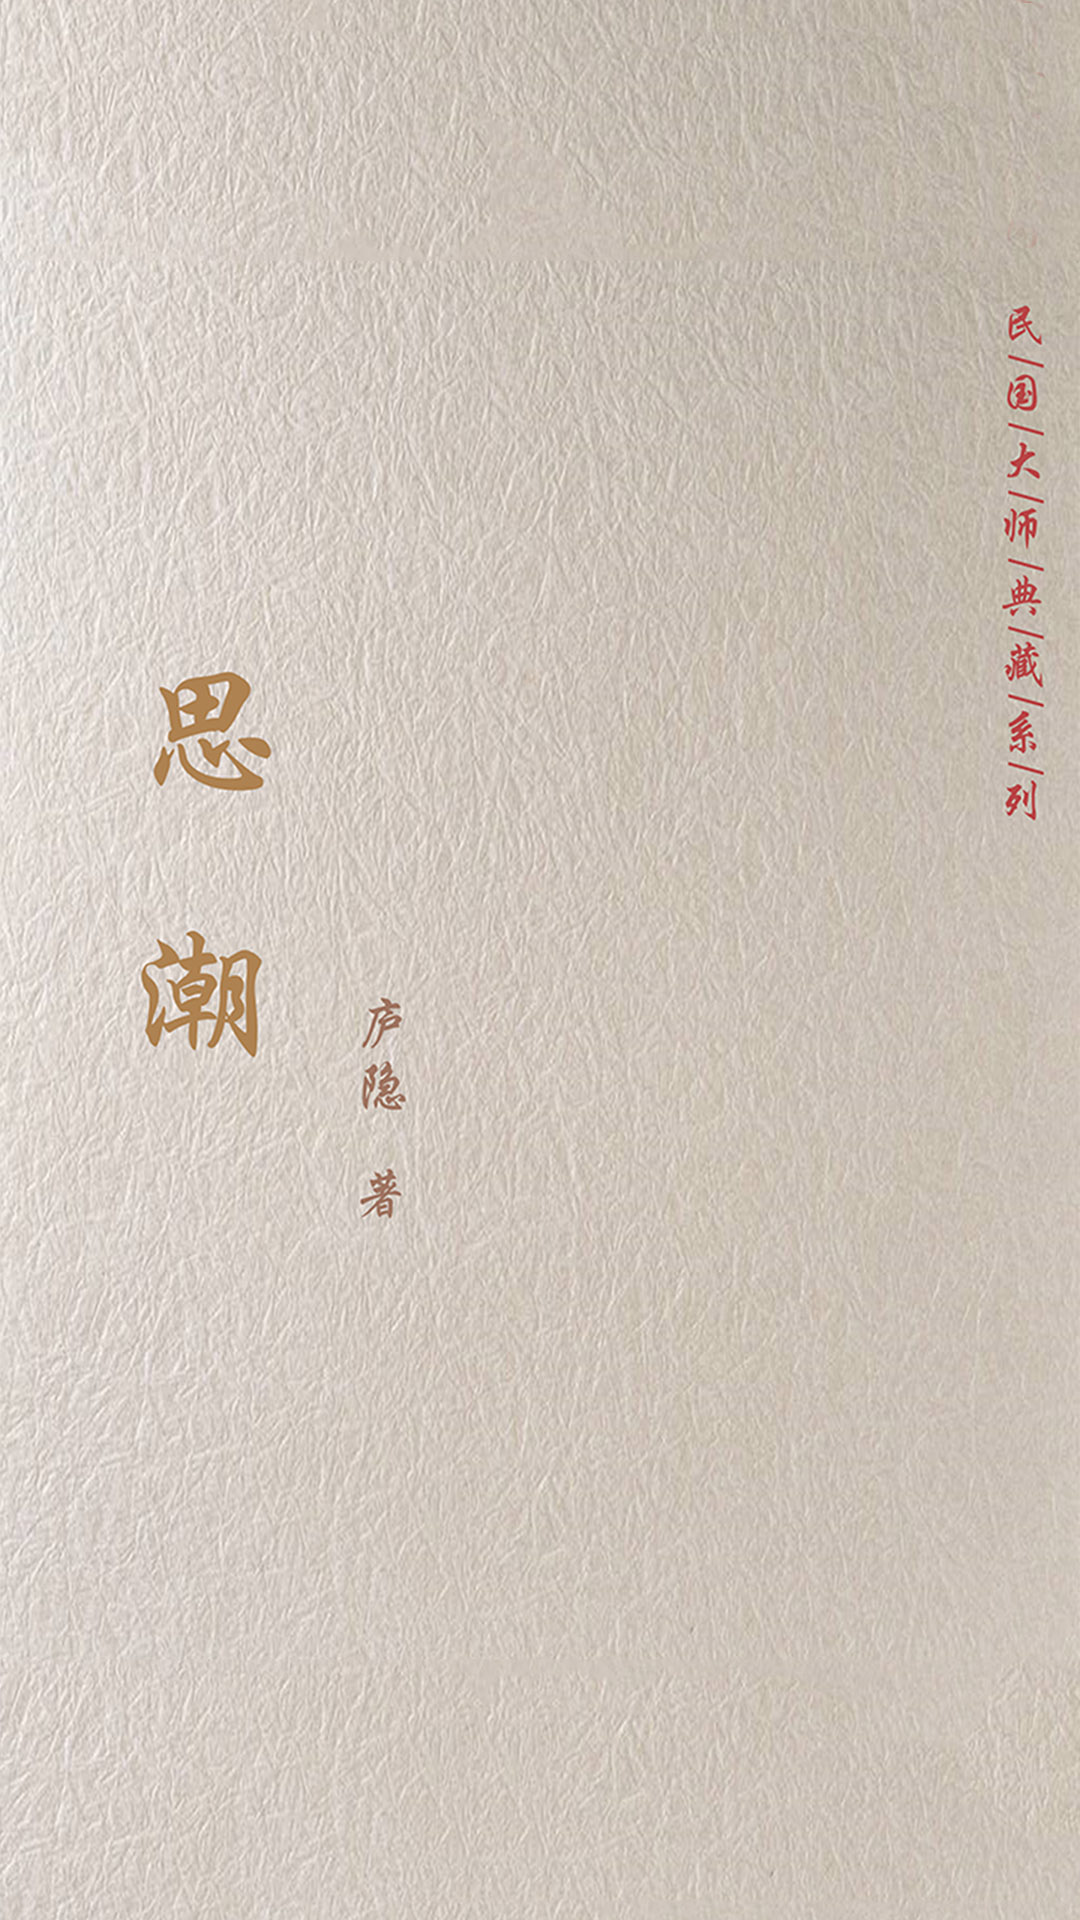 民/国/大/师/典/藏/系/列
思潮
庐隐 著